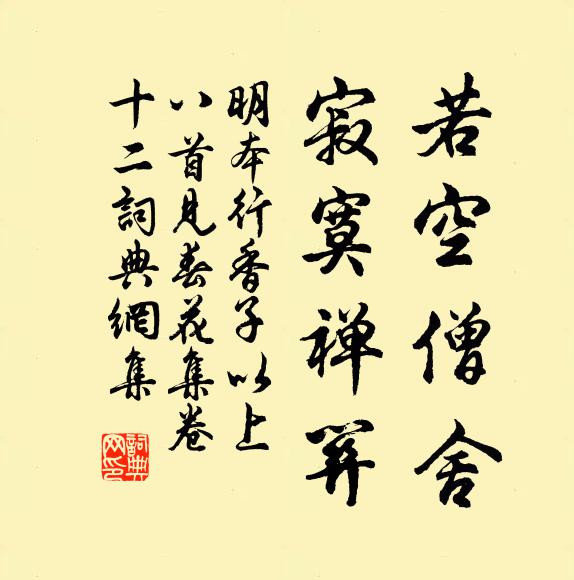 若空僧舍
寂寞禅関
明本行香子以上
八首見春花集卷
十二詞典網集
詞典網印